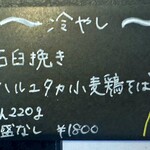 冷やし
石臼挽き
ハルユタカ小麦鶏そば
220g
なし ¥1800